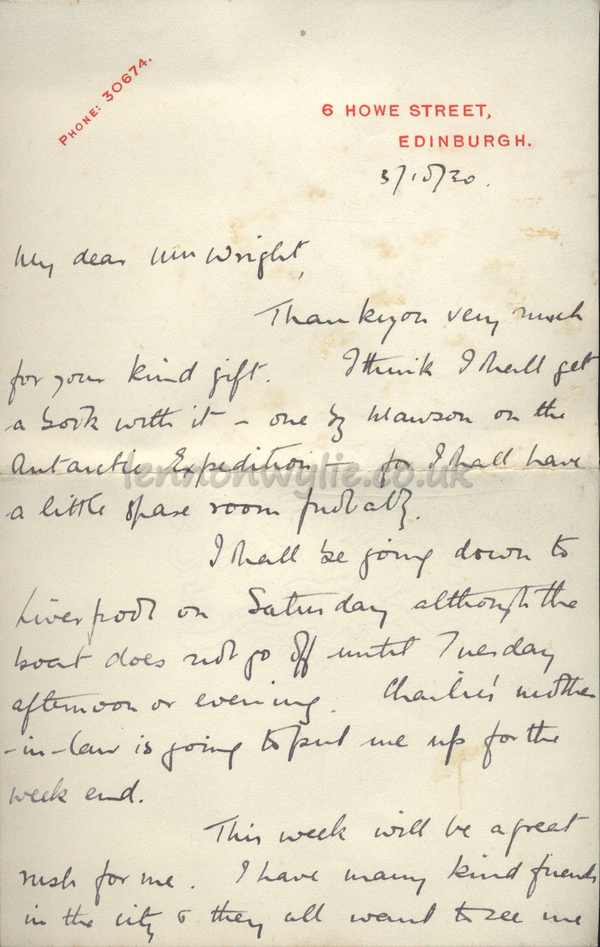 PHONE: 30674.
6 HOWE STREET,
EDINBURGH.
3/10/30.
My dear Mrs Wright,
Thank you very much
for your kind gift. I think I shall get
a book with it – one by Mawson on the
Antarctic Expedition – for I shall have
lennonwylie.co.uk
a little spare room probably.
I shall be going down to
Liverpool on Saturday although the
boat does not go off until Tuesday
afternoon or evening. Charlie's mother
-in-law is going to put me up for the
week end.
This week will be a great
rush for me. I have many kind friends
in the city & they all want to see me